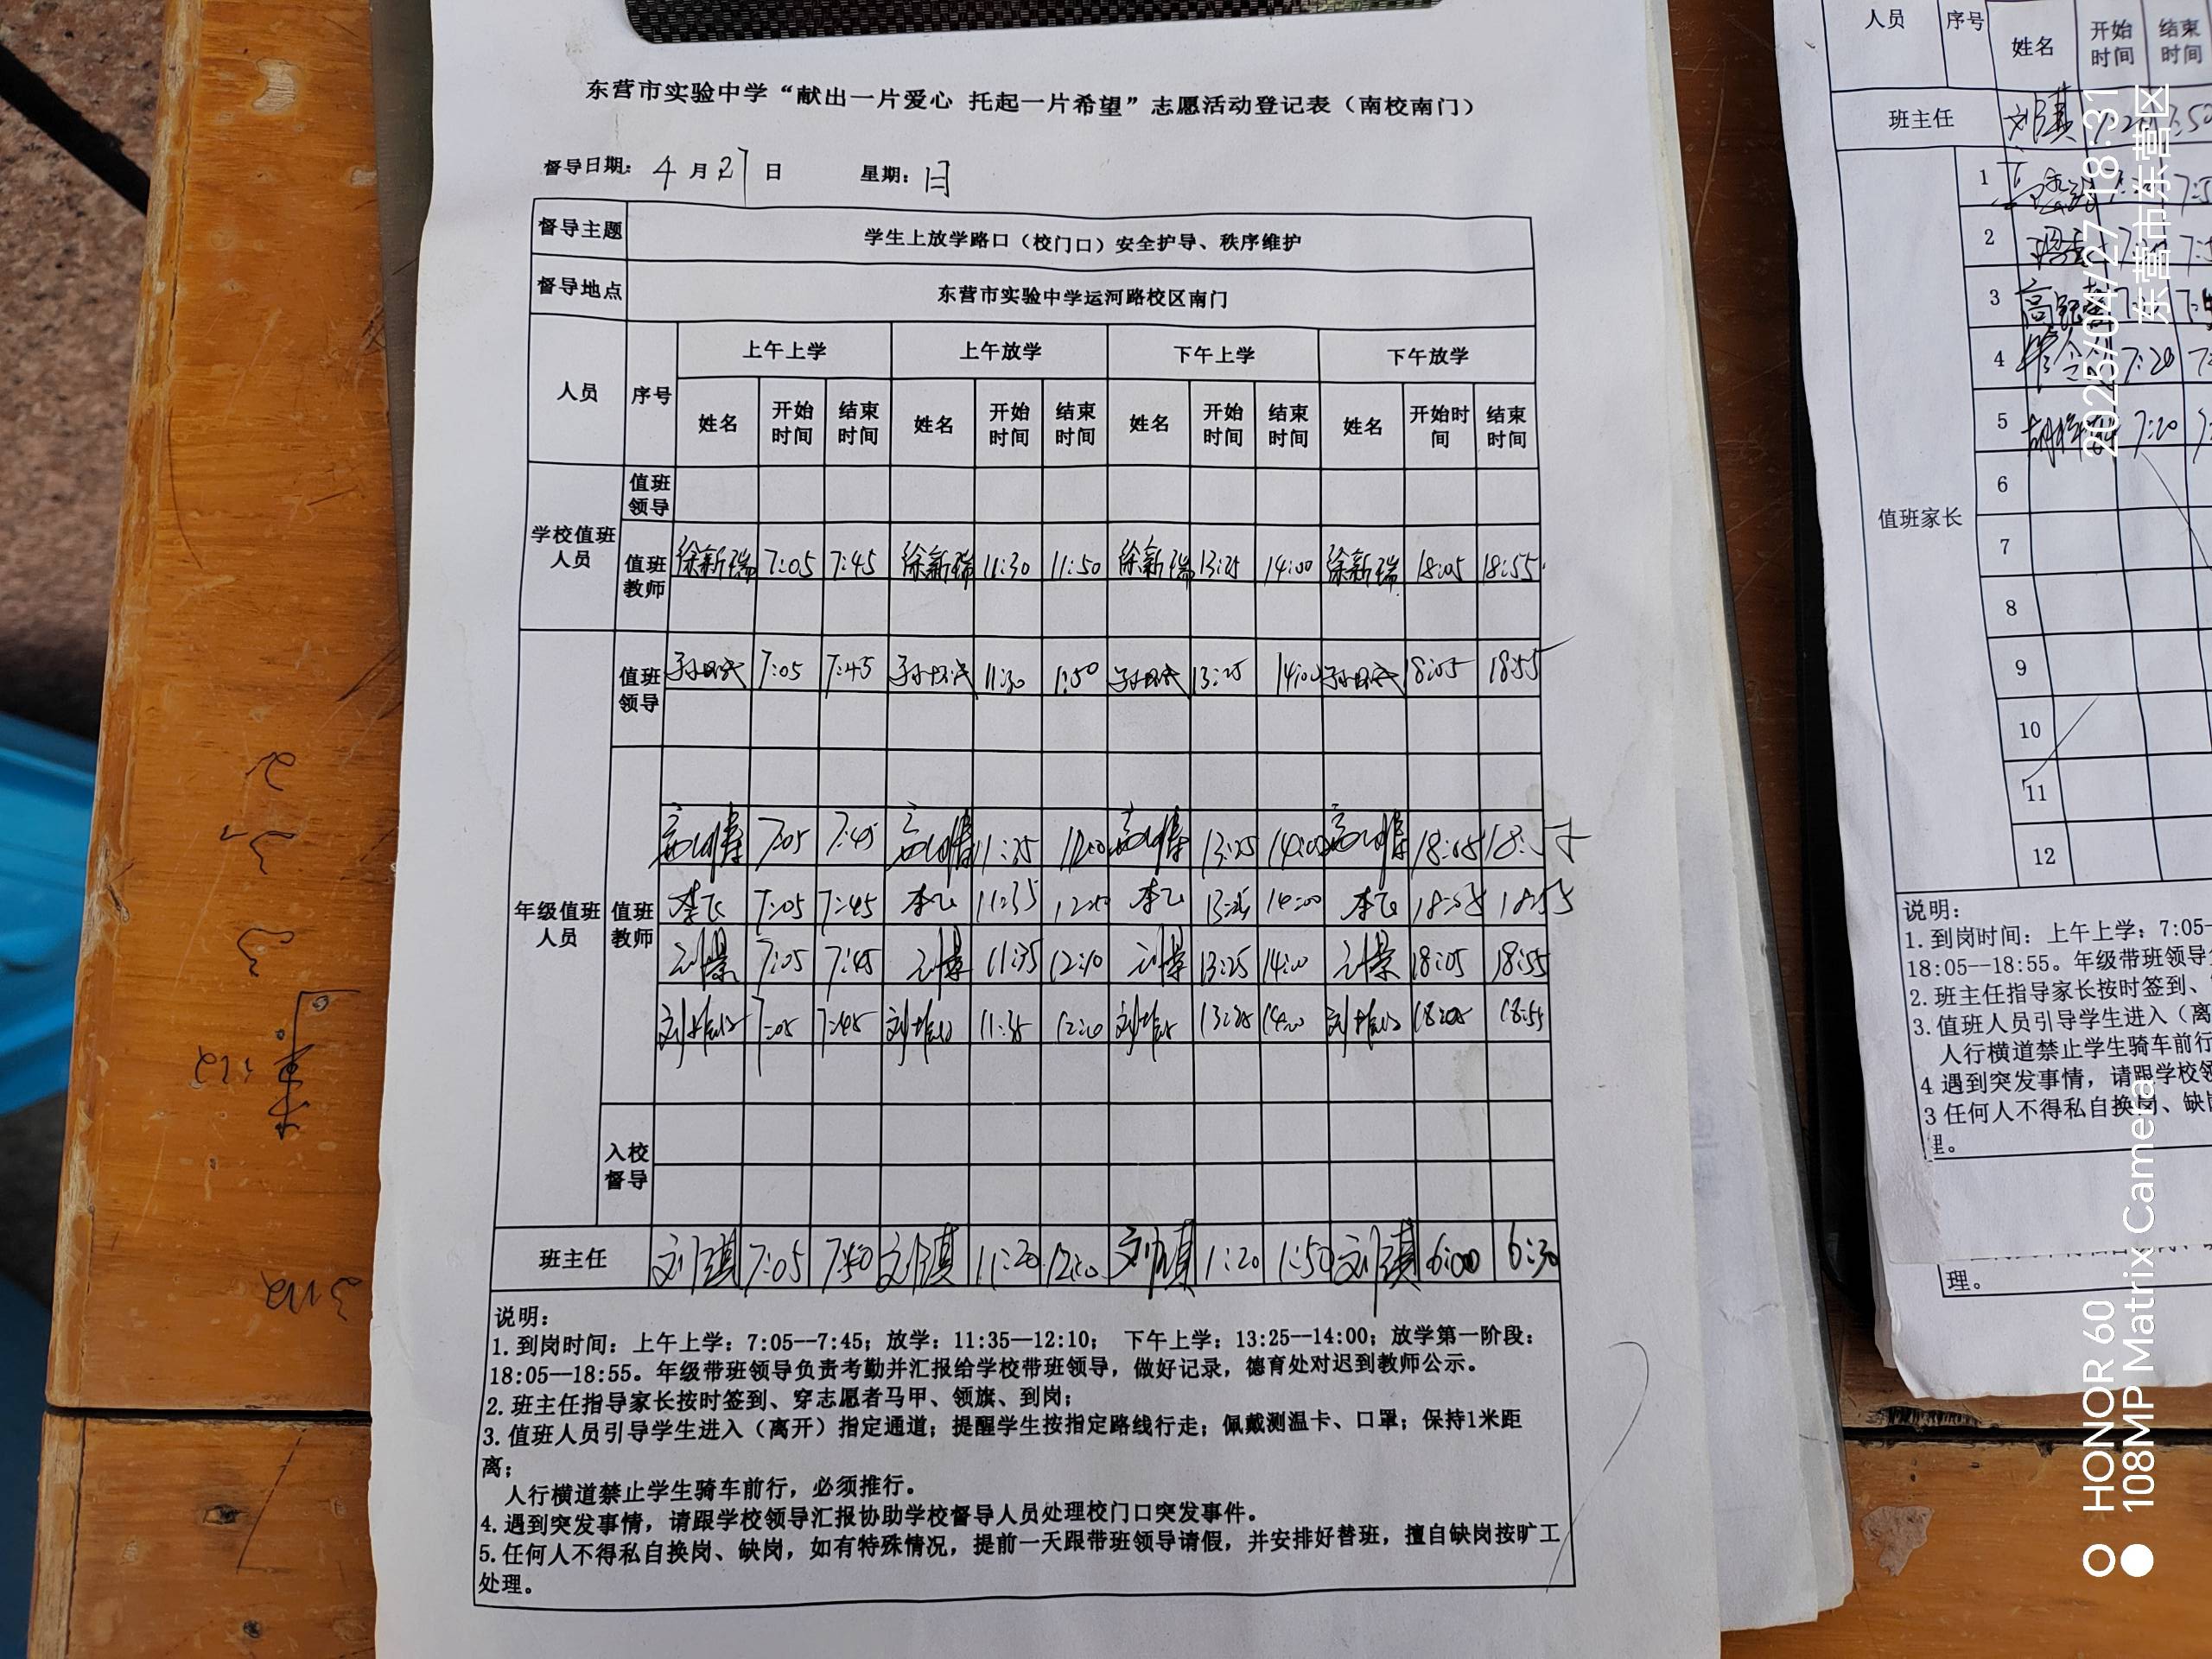 东营市实验中学“献出一片爱心 托起一片希望”志愿活动登记表（南校南门）
督导日期：4月27日 星期：日
督导主题 学生上放学路口（校门口）安全护导、秩序维护
督导地点 东营市实验中学运河路校区南门
人员 序号 上午上学 上午放学 下午上学 下午放学
姓名 开始时间 结束时间 姓名 开始时间 结束时间 姓名 开始时间 结束时间 姓名 开始时间 结束时间
学校值班人员
值班领导
值班教师 徐新瑞 7:05 7:45 徐新瑞 11:30 11:50 徐新瑞 13:25 14:00 徐新瑞 18:05 18:55
年级值班人员
值班领导 7:05 7:45 11:30 11:50 13:25 14:00 18:05 18:55
值班教师
7:05 7:45 11:35 13:25 14:00 18:05 18:55
李飞 7:05 7:45 李飞 11:35 12:10 李飞 13:25 14:00 李飞 18:05 18:55
7:05 7:45 11:35 12:10 13:25 14:00 18:05 18:55
7:05 7:45 11:35 12:10 13:25 14:00 18:05 18:55
入校督导
班主任 刘琪 7:05 7:50 刘琪 11:20 12:10 刘琪 1:20 1:50 刘琪 6:00 6:30
说明：
1.到岗时间：上午上学：7:05--7:45；放学：11:35—12:10； 下午上学：13:25--14:00；放学第一阶段：
18:05--18:55。年级带班领导负责考勤并汇报给学校带班领导，做好记录，德育处对迟到教师公示。
2.班主任指导家长按时签到、穿志愿者马甲、领旗、到岗；
3.值班人员引导学生进入（离开）指定通道；提醒学生按指定路线行走；佩戴测温卡、口罩；保持1米距
离；
人行横道禁止学生骑车前行，必须推行。
4.遇到突发事情，请跟学校领导汇报协助学校督导人员处理校门口突发事件。
5.任何人不得私自换岗、缺岗，如有特殊情况，提前一天跟带班领导请假，并安排好替班，擅自缺岗按旷工
处理。
人员 序号 姓名 开始时间 结束时间
班主任 刘琪
值班家长
1
2
3
4 7:20
5 7:20
6
7
8
9
10
11
12
说明：
1.到岗时间：上午上学：7:05-
18:05--18:55。年级带班领导
2.班主任指导家长按时签到、
3.值班人员引导学生进入（离
人行横道禁止学生骑车前行
4 遇到突发事情，请跟学校领
3 任何人不得私自换岗、缺
理。
理。
2025/04/27 18:31
东营市东营区
HONOR 60
108MP Matrix Camera